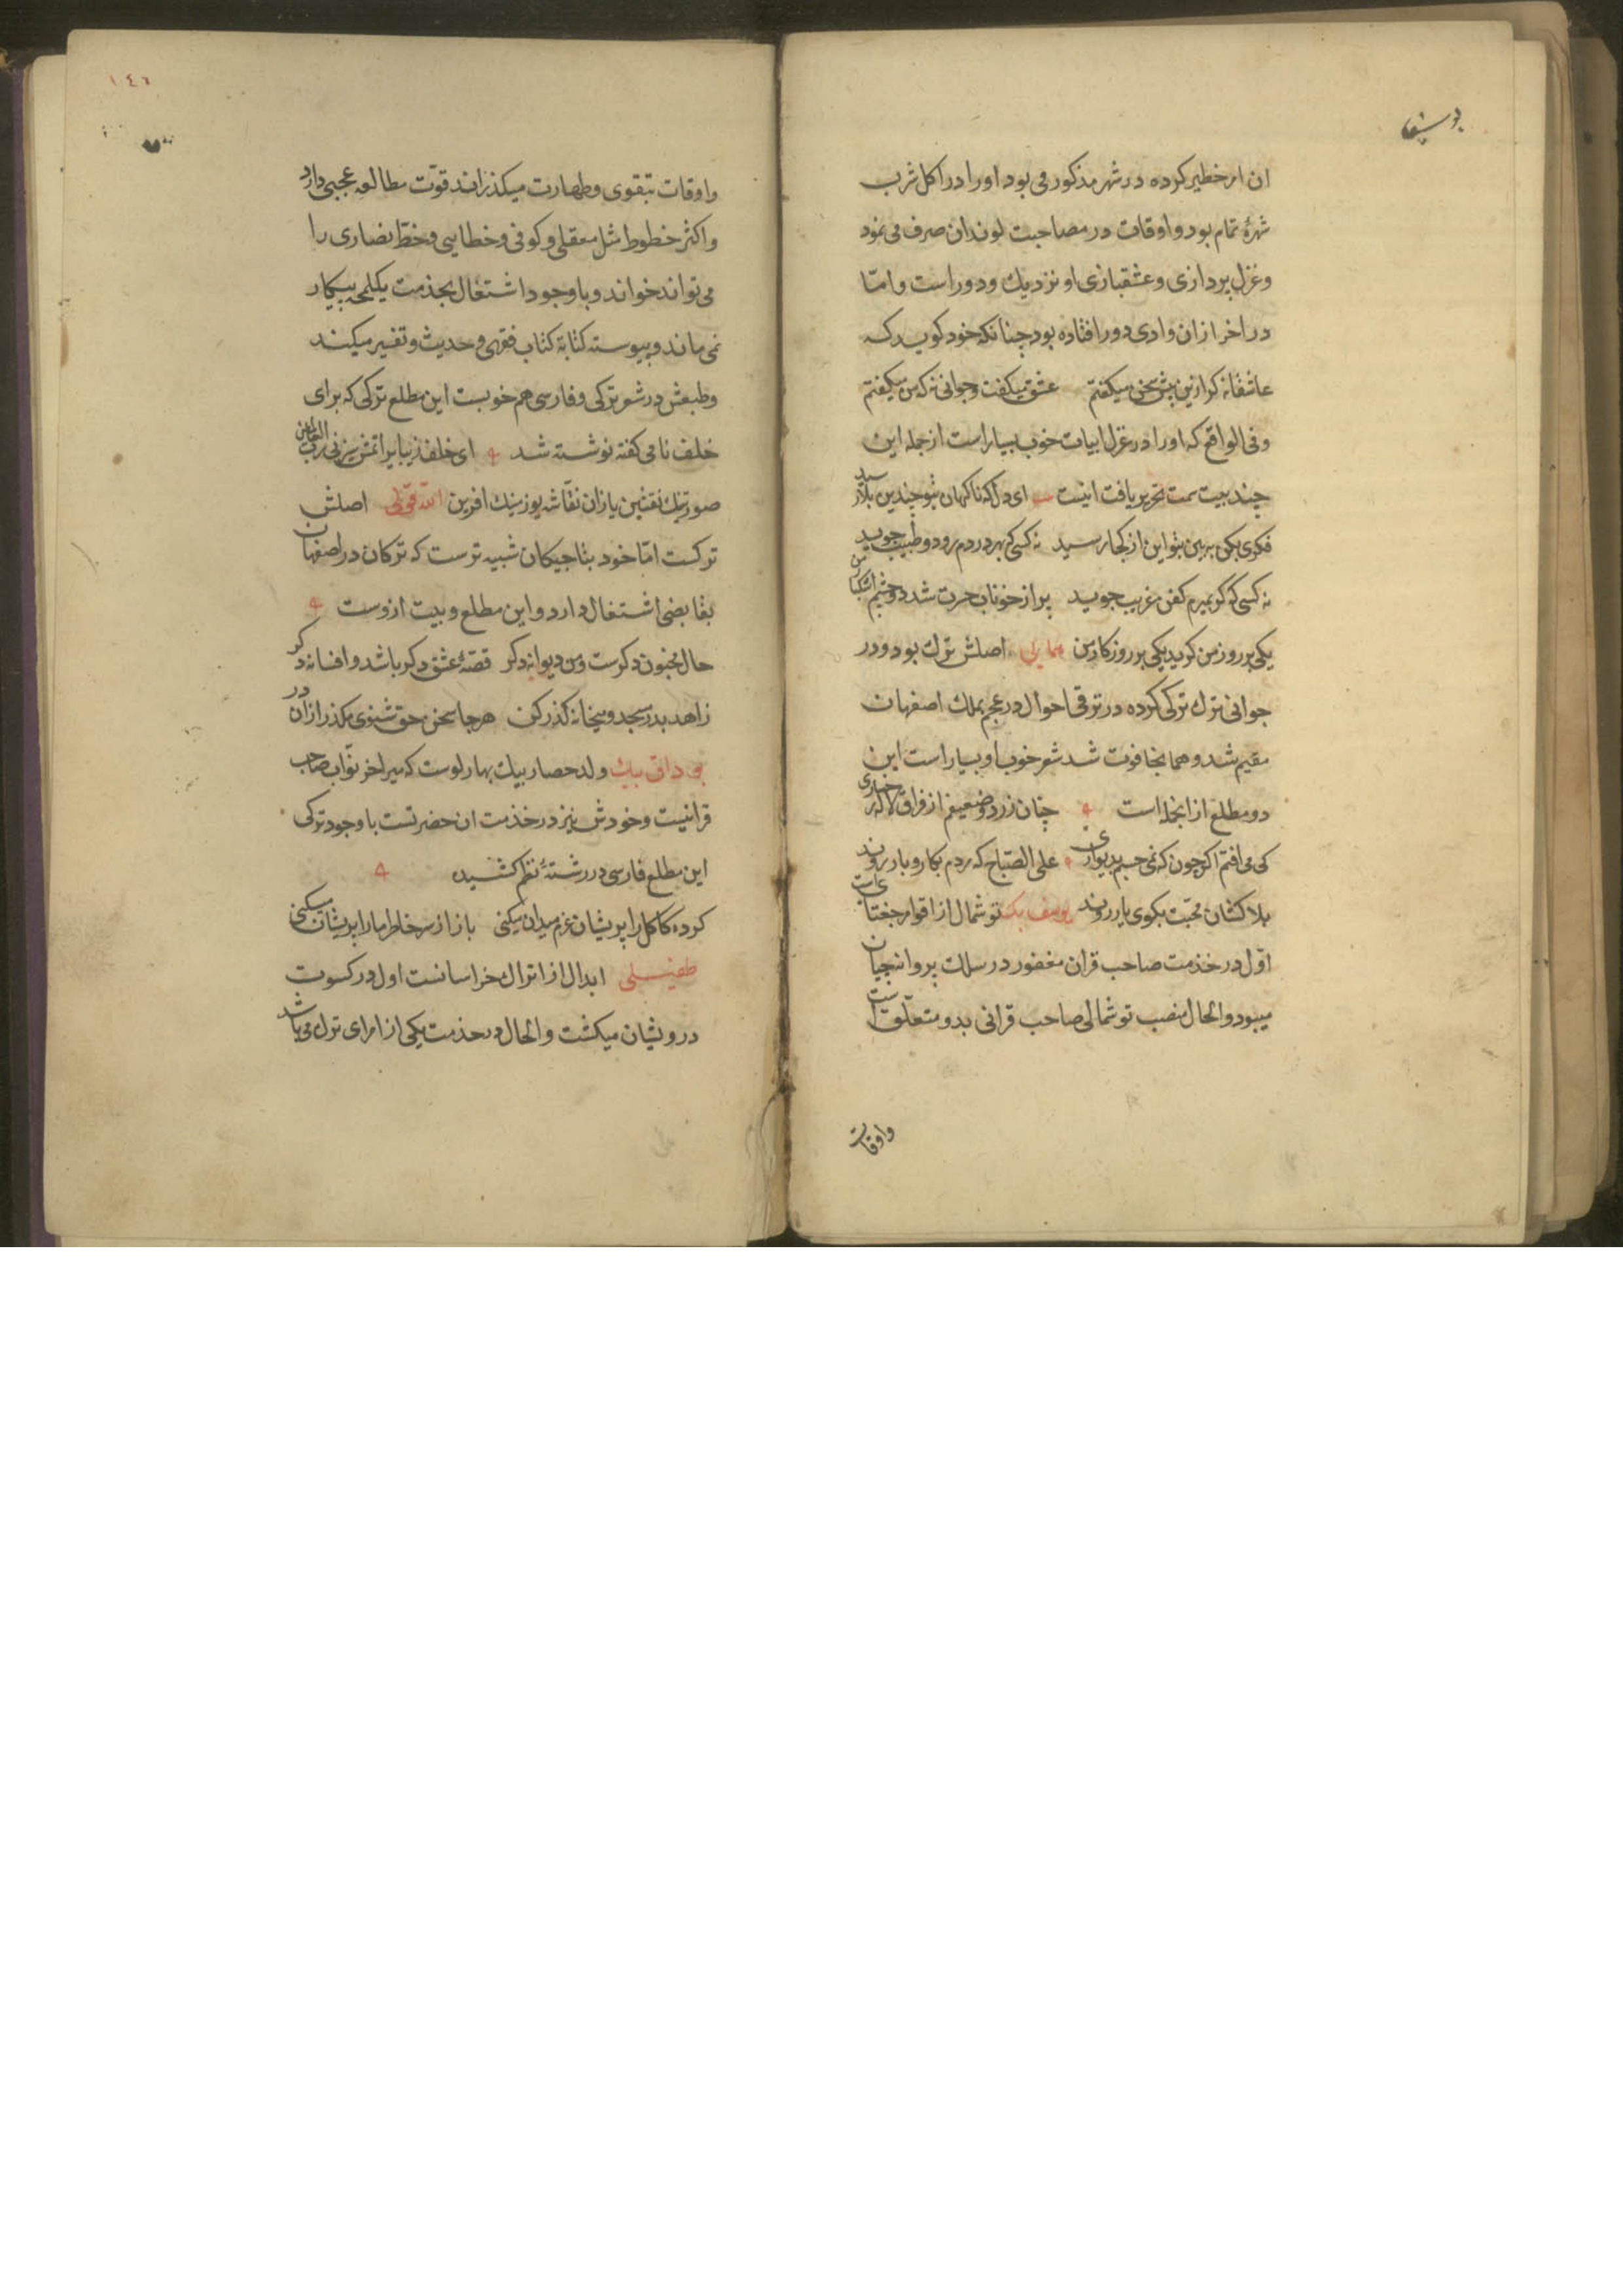 ان امر خطیر کرده در شهر مذکور می بود او را در اکل شرب
شهرهٔ تمام بود و اوقات در مصاحبت لوندان صرف می نمود
و غزل پردازی و عشقبازی او نزدیك و دور است و امّا
در اخر ازان وادی دور افتاده بود چنانکه خود کوید که
عاشقانه کر ازین پیش سخن میکفتم عشق میکفت و جوانی نه که من میکفتم
و فی الواقع که او را در غزل ابیات خوب بسیار است از جمله این
چند بیت سمت تحریر یافت اینست ای دل که ناکهان بتو چندین بلا رسید
فکری بکن ببین بتو این از کجا رسید نه کسی کم بهر دردم رود و طبیب جوید
نه کسی که کر بمیرم کفن غریب جوید پر از خوناب حسرت شد دو چشم اشکبار من
یکی بر روز من کرید یکی بر روزکار من همایی اصلش ترك بود و در
جوانی ترك ترکی کرده در ترقی احوال در عجم بملك اصفهان
مقیم شد و همانجا فوت شد شعر خوب او بسیار است این
دو مطلع از انجمله است چنان زرد و ضعیفم از فراق لاله رخساری
که می افتم اکر چون که نمی چسبم بدیواری علی الصّباح که مردم بکار و بار روند
بلاکشان محبّت بکوی یار روند یوسف بك توشمال از اقوام جغتای است
اوّل در خذمت صاحب قران مغفور در سلك پروانچیان
میبود و الحال منصب توشمالی صاحب قرانی بدو متعلّق است
واوقات
١٤٦
واوقات بتقوی و طهارت میکذراند قوّت مطالعه عجبی دارد
و اکثر خطوط مثل معقلی و کوفی و خطایی و خطّ نصاری را
می تواند خواند و با وجود اشتغال بخذمت یکلمحه بیکار
نمی ماند و پیوسته کتابة کتاب فقهی و حدیث و تفسیر میکند
و طبعش در شعر ترکی و فارسی هم خوبست این مطلع ترکی که برای
خلف نامی کفته نوشته شد ای خلف زیبا یراتمش سزنی رب العالمین
صورتینك نقشین یازان نقّاشه یوز مینك افرین الله قولی اصلش
ترکست امّا خود بتاجیکان شبیه ترست که ترکان در اصفهان
بقابضی اشتغال دارد و این مطلع و بیت ازوست
حال مجنون دکرست و من دیوانه دکر قصّهٔ عشق دکر باشد و افسانه دکر
زاهد بدر مسجد و میخانه کذر کن هر جا سخن حق شنوی مکذر ازان در
بوداق بیك ولد حصار بیك بهارلوست که میر اخر نوّاب صاحب
قرانیست و خودش نیز در خذمت ان حضرتست با وجود ترکی
این مطلع فارسی در رشتهٔ نظم کشیده
کرده کاکل را پریشان عزم میدان میکنی باز از سر خاطر ما را پریشان میکنی
طفیلی ابدال از اتراك خراسانست اول در کسوت
درویشان میکشت و الحال در خذمت یکی از امرای ترك می باشد